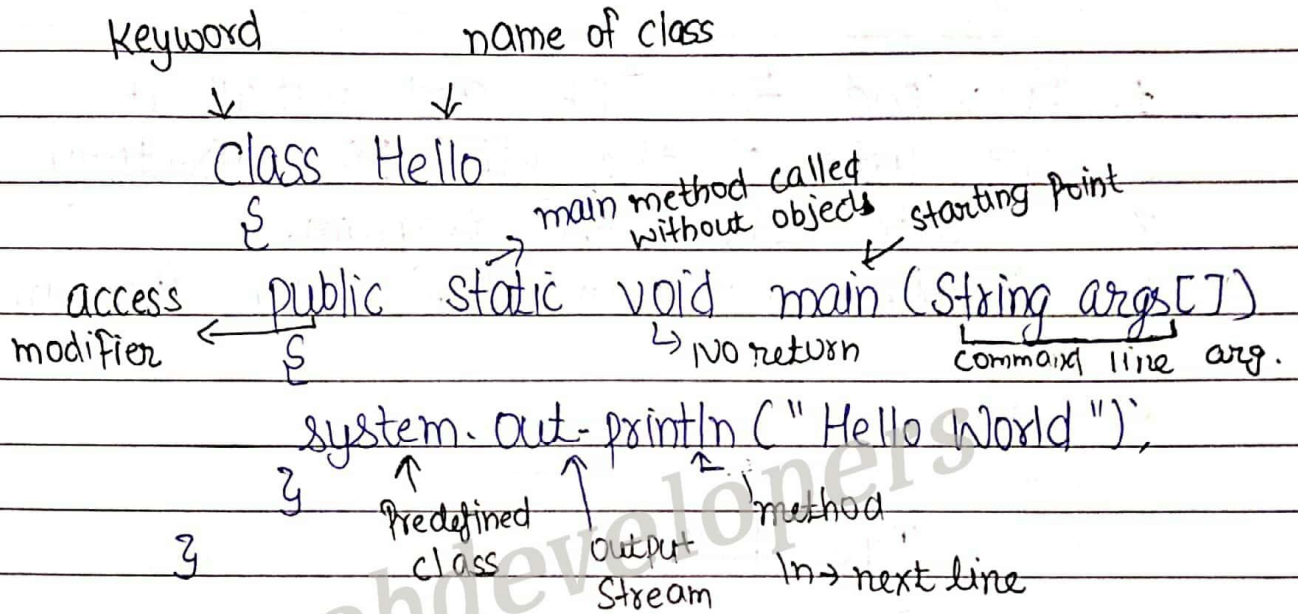 Keyword name of class
↓ ↓
Class Hello
{
main method called
without objects
starting Point
access
modifier
public static void main (String args[])
{
↳ No return
command line arg.
system. out. println (" Hello World ");
}
Predefined
class
output
Stream
method
ln → next line
}